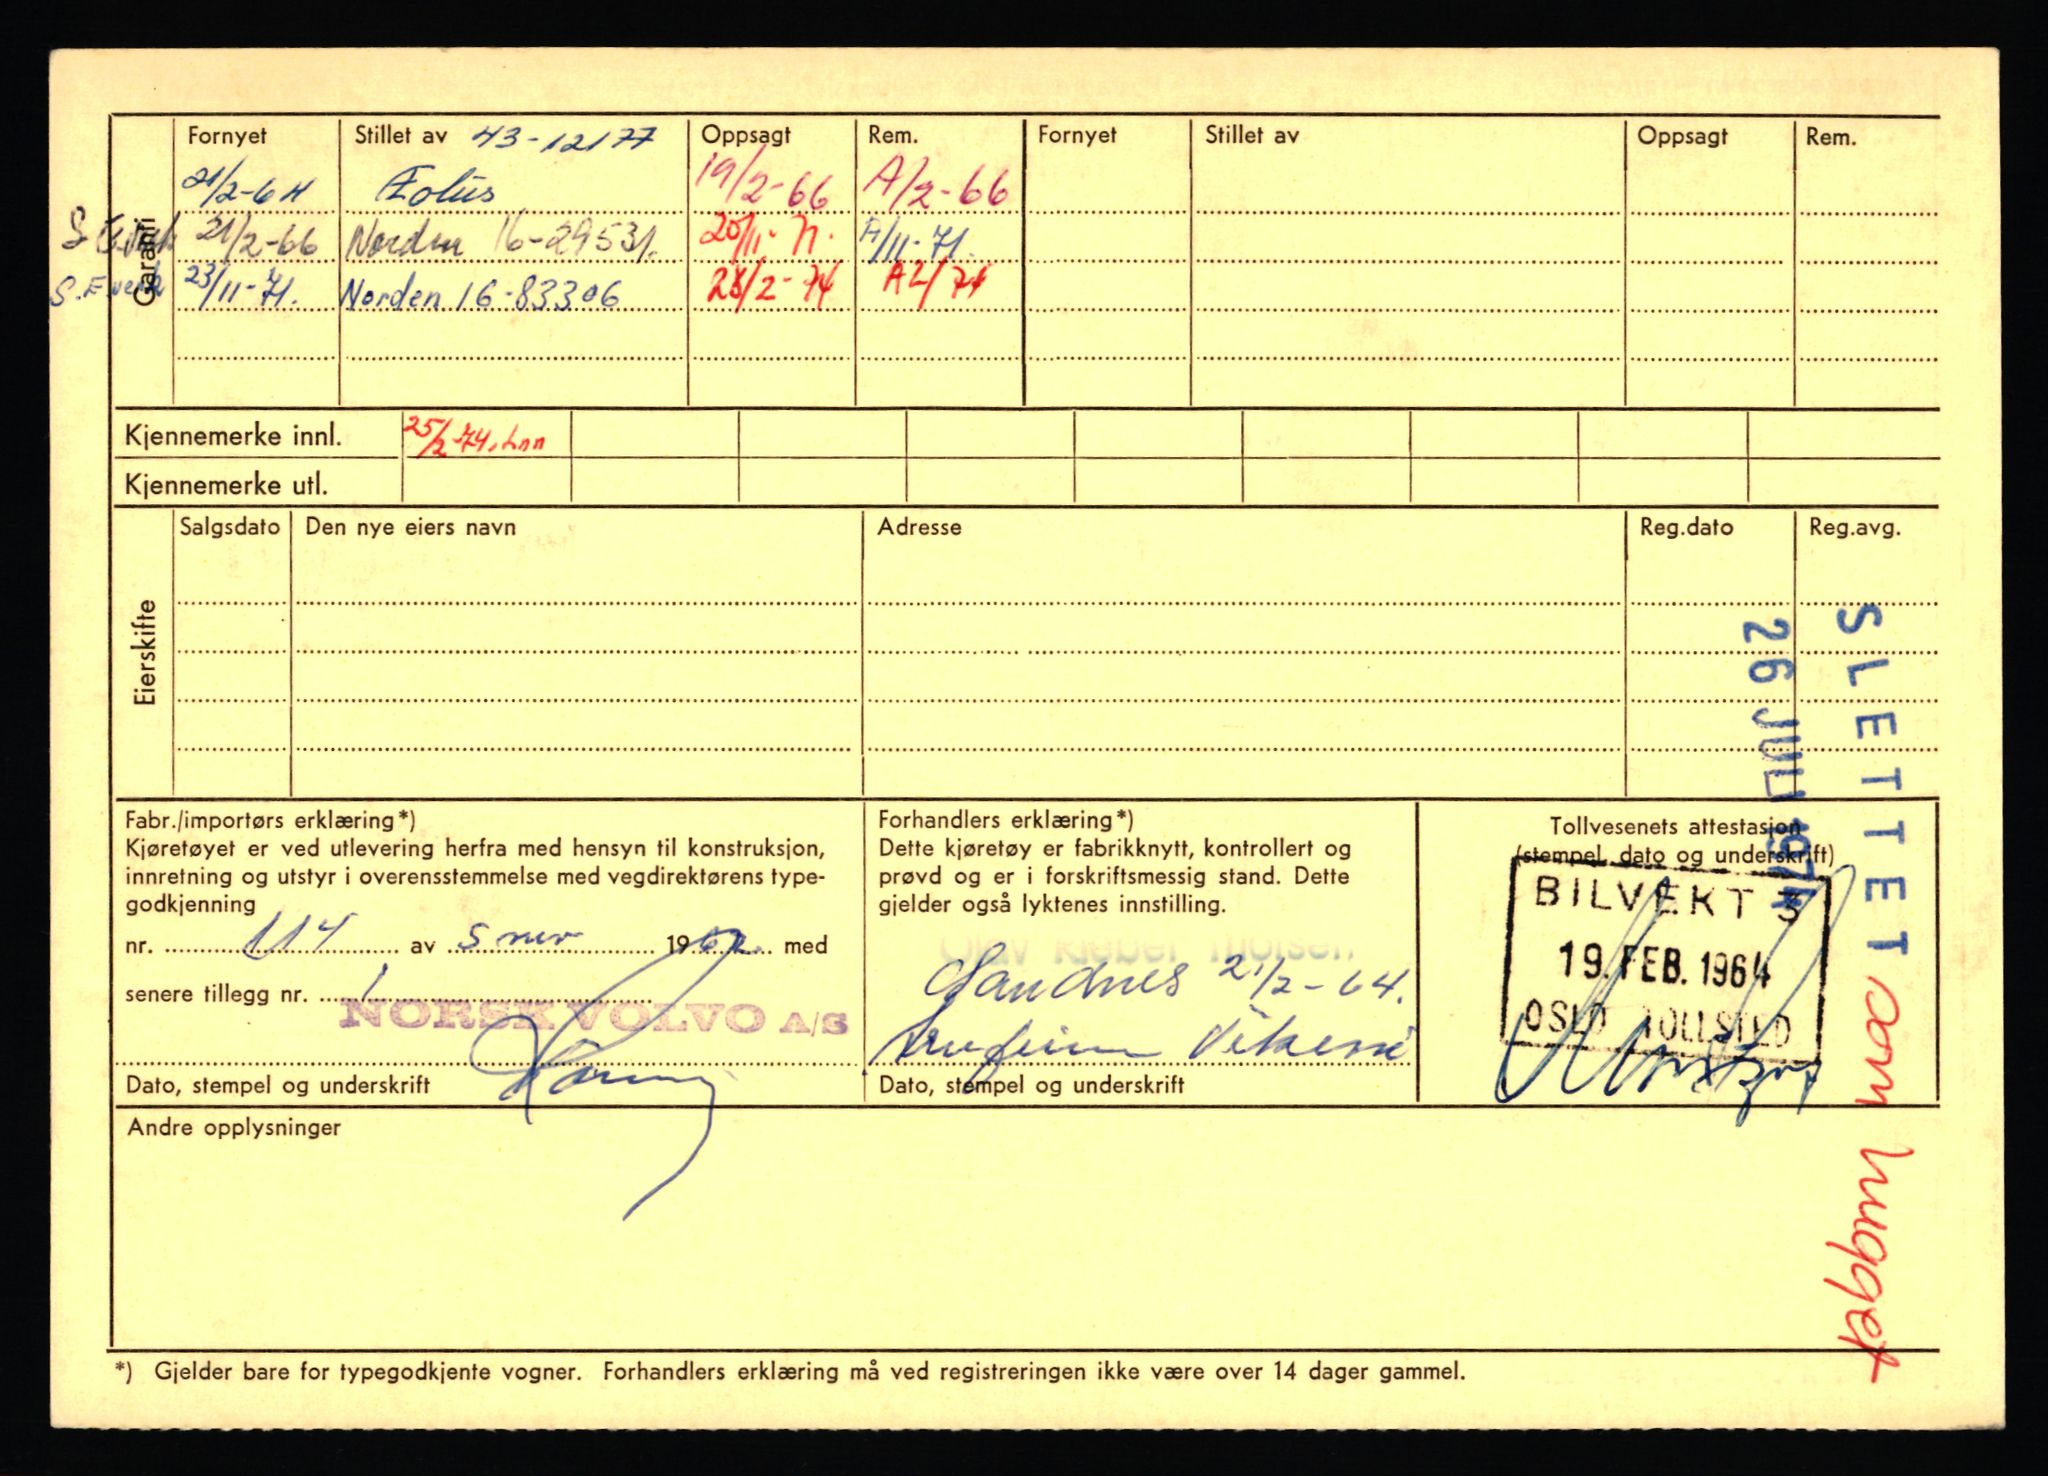 Garanti
Fornyet Stillet av 43-12177 Oppsagt Rem. Fornyet Stillet av Oppsagt Rem.
21/2-64 Æolus 19/2-66 A/2-66
21/2-66 Norden 16-29531. 20/11-71. A/11-71.
S. E verk 23/11-71. Norden 16-83306 28/2-74 A2/74
Kjennemerke innl. 25/2-74.
Kjennemerke utl.
Eierskifte
Salgsdato Den nye eiers navn Adresse Reg.dato Reg.avg.
SLETTET som hugget
26 JULI 1974
Fabr./importørs erklæring*)
Kjøretøyet er ved utlevering herfra med hensyn til konstruksjon,
innretning og utstyr i overensstemmelse med vegdirektørens type-
godkjenning
nr. 114 av 5 nov 1962 med
senere tillegg nr. 1
NORSK VOLVO A/S
Dato, stempel og underskrift
Forhandlers erklæring*)
Dette kjøretøy er fabrikknytt, kontrollert og
prøvd og er i forskriftsmessig stand. Dette
gjelder også lyktenes innstilling.
Olav Kleber
Sandnes 21/2-64.
Dato, stempel og underskrift
Tollvesenets attestasjon
(stempel, dato og underskrift)
BILVEKT 3
19. FEB. 1964
OSLO TOLLSTED
Andre opplysninger
*) Gjelder bare for typegodkjente vogner. Forhandlers erklæring må ved registreringen ikke være over 14 dager gammel.